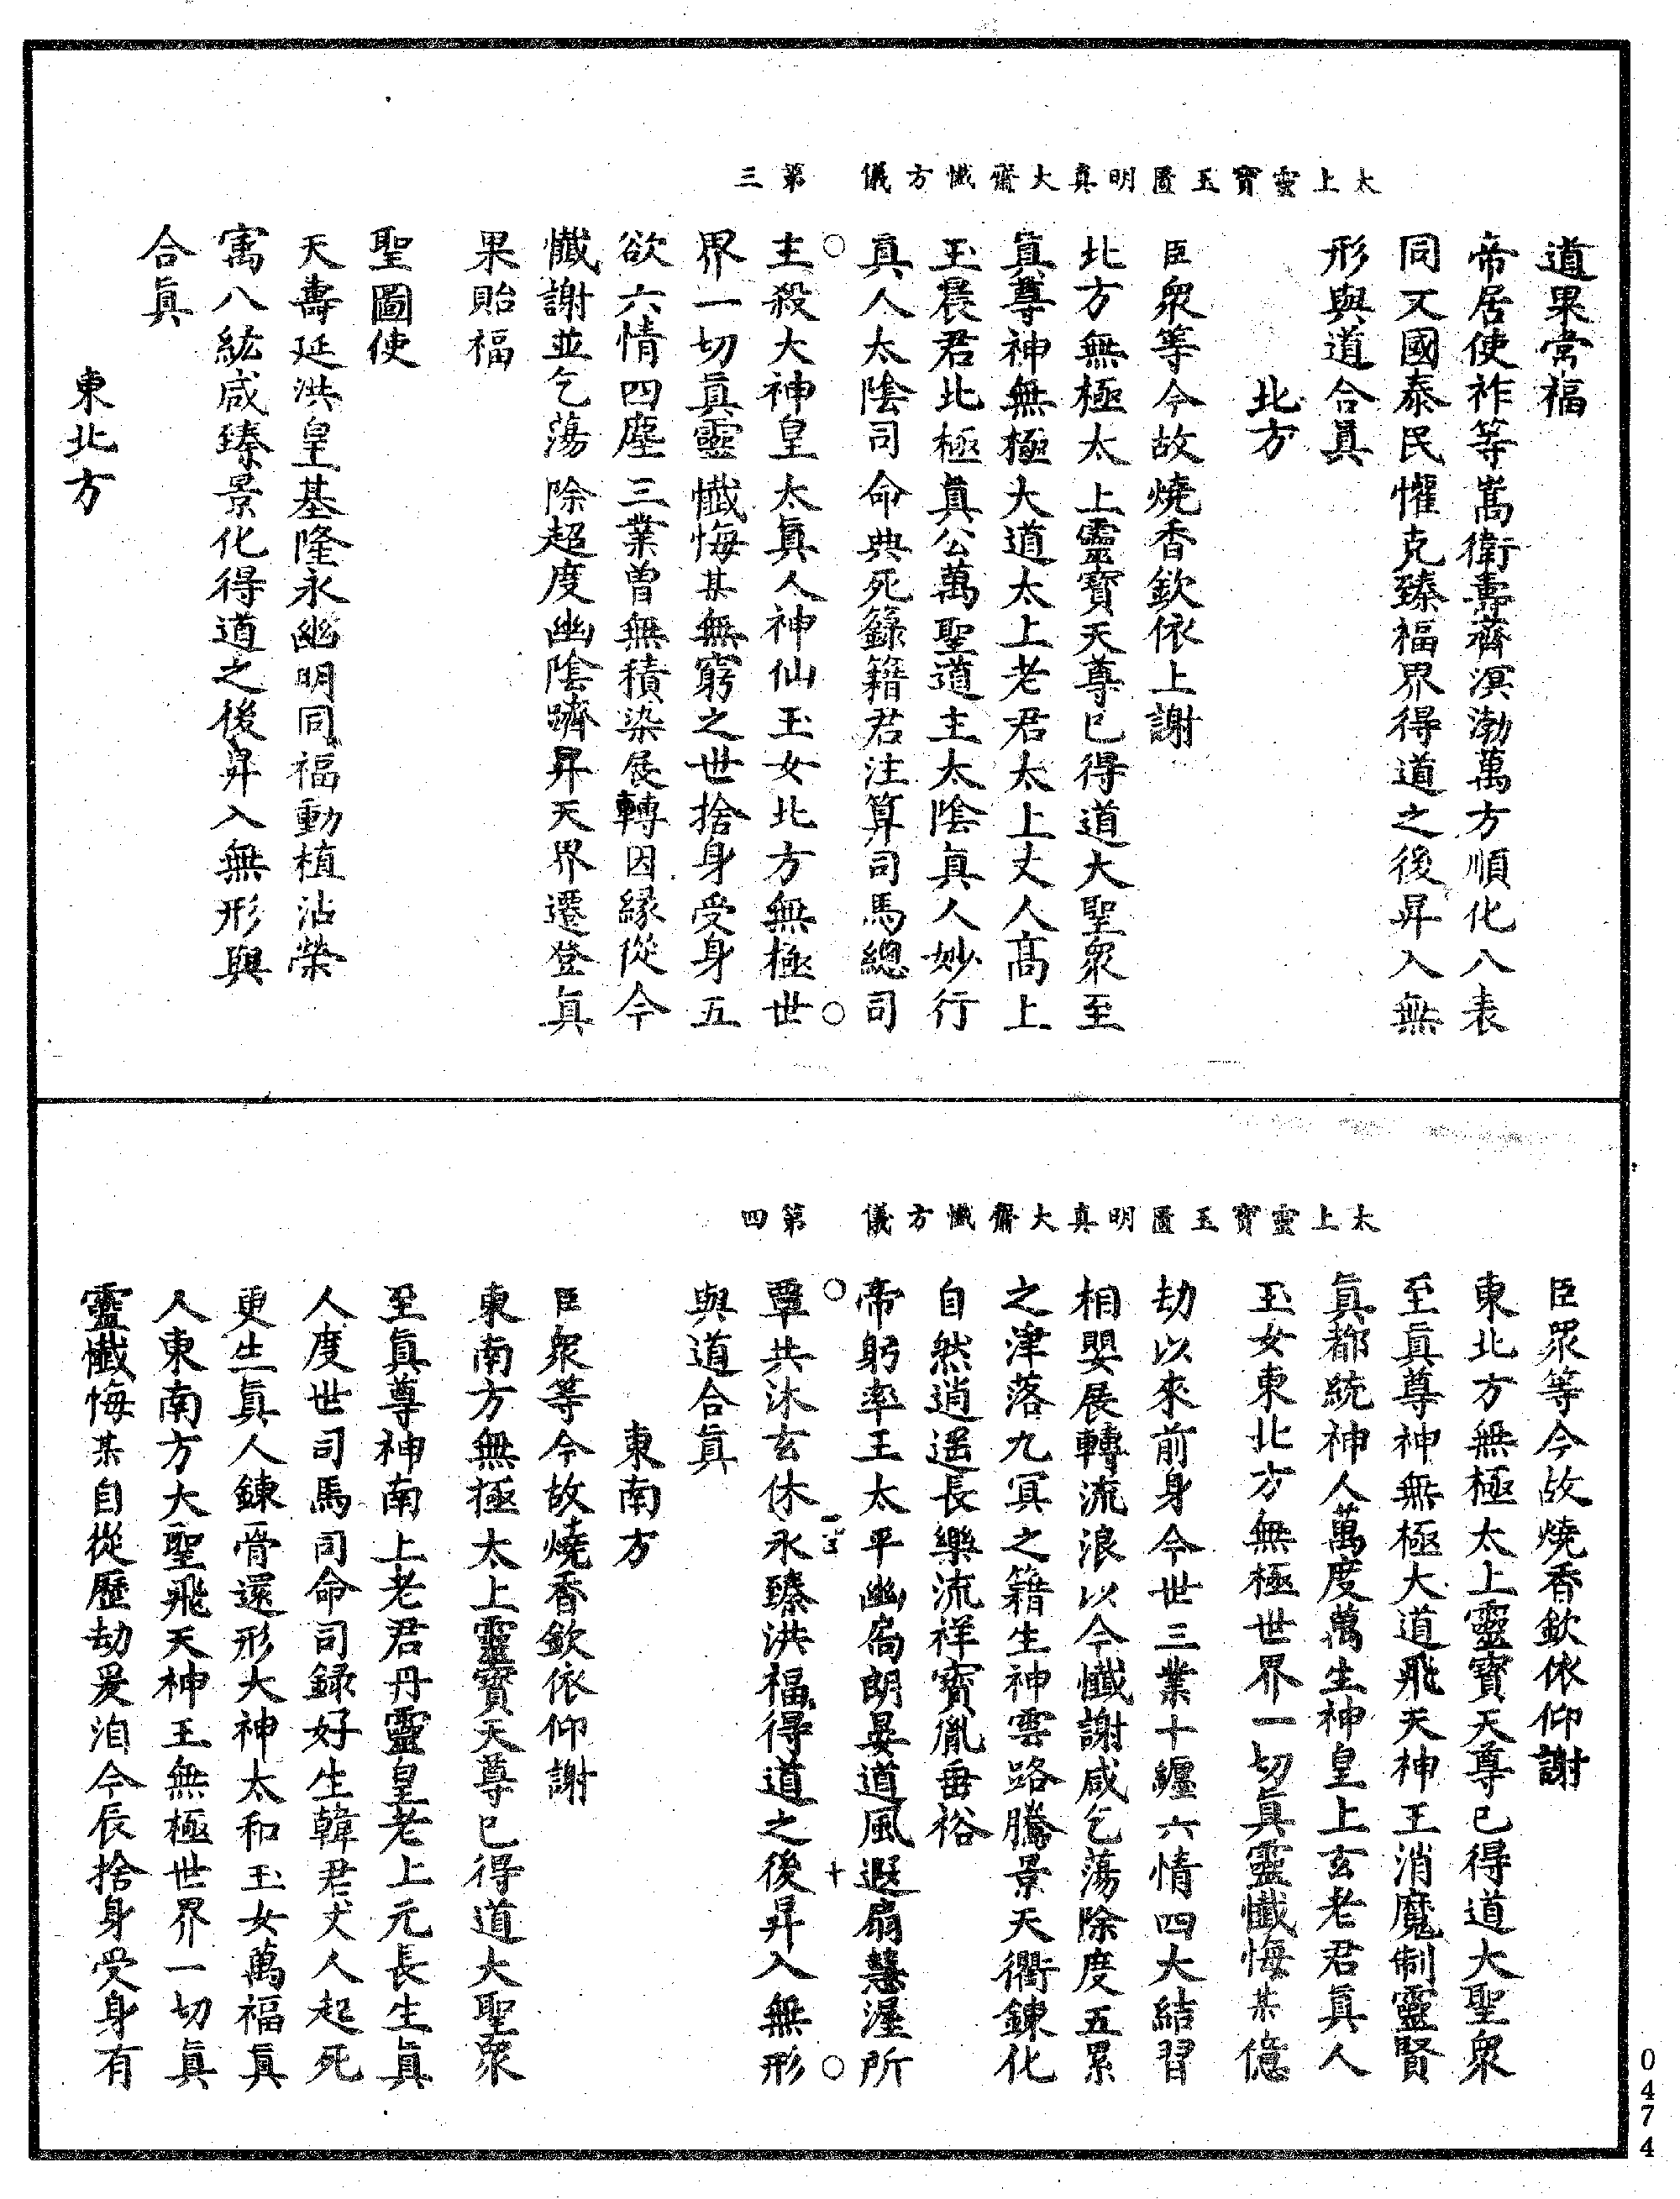 太上靈寶玉匱明真大齋懺方儀　第三
道果常福
帝居使祚等嵩衡壽齊溟渤萬方順化八表
同文國泰民懽克臻福界得道之後昇入無
形與道合真
北方
臣衆等今故燒香欽依上謝
北方無極太上靈寶天尊已得道大聖衆至
真尊神無極大道太上老君太上丈人高上
玉晨君北極真公萬聖道主太陰真人妙行
真人太陰司命典死籙籍君注算司馬總司
主殺大神皇太真人神仙玉女北方無極世
界一切真靈懺悔某無窮之世捨身受身五
欲六情四塵三業曾無積染展轉因緣從今
懺謝並乞蕩除超度幽陰躋昇天界遷登真
果貽福
聖圖使
天壽延洪皇基隆永幽明同福動植沾榮
寓八紘咸臻景化得道之後昇入無形與
合真
東北方
太上靈寶玉匱明真大齋懺方儀　第四
臣衆等今故燒香欽依仰謝
東北方無極太上靈寶天尊已得道大聖衆
至真尊神無極大道飛天神王消魔制靈賢
真都統神人萬度萬生神皇上玄老君真人
玉女東北方無極世界一切真靈懺悔某億
劫以來前身今世三業十纏六情四大結習
相嬰展轉流浪以今懺謝咸乞蕩除度五累
之津落九冥之籍生神雲路騰景天衢鍊化
自然逍遥長樂流祥寶胤垂裕
帝躬率王太平幽扃朗晏道風遐扇慧渥所
覃共沐玄休永臻洪福得道之後昇入無形
與道合真
東南方
臣衆等今故燒香欽依仰謝
東南方無極太上靈寶天尊已得道大聖衆
至真尊神南上老君丹靈皇老上元長生真
人度世司馬司命司録好生韓君丈人起死
更生真人鍊骨還形大神太和玉女萬福真
人東南方大聖飛天神王無極世界一切真
靈懺悔某自從歷劫爰洎今辰捨身受身有
0474